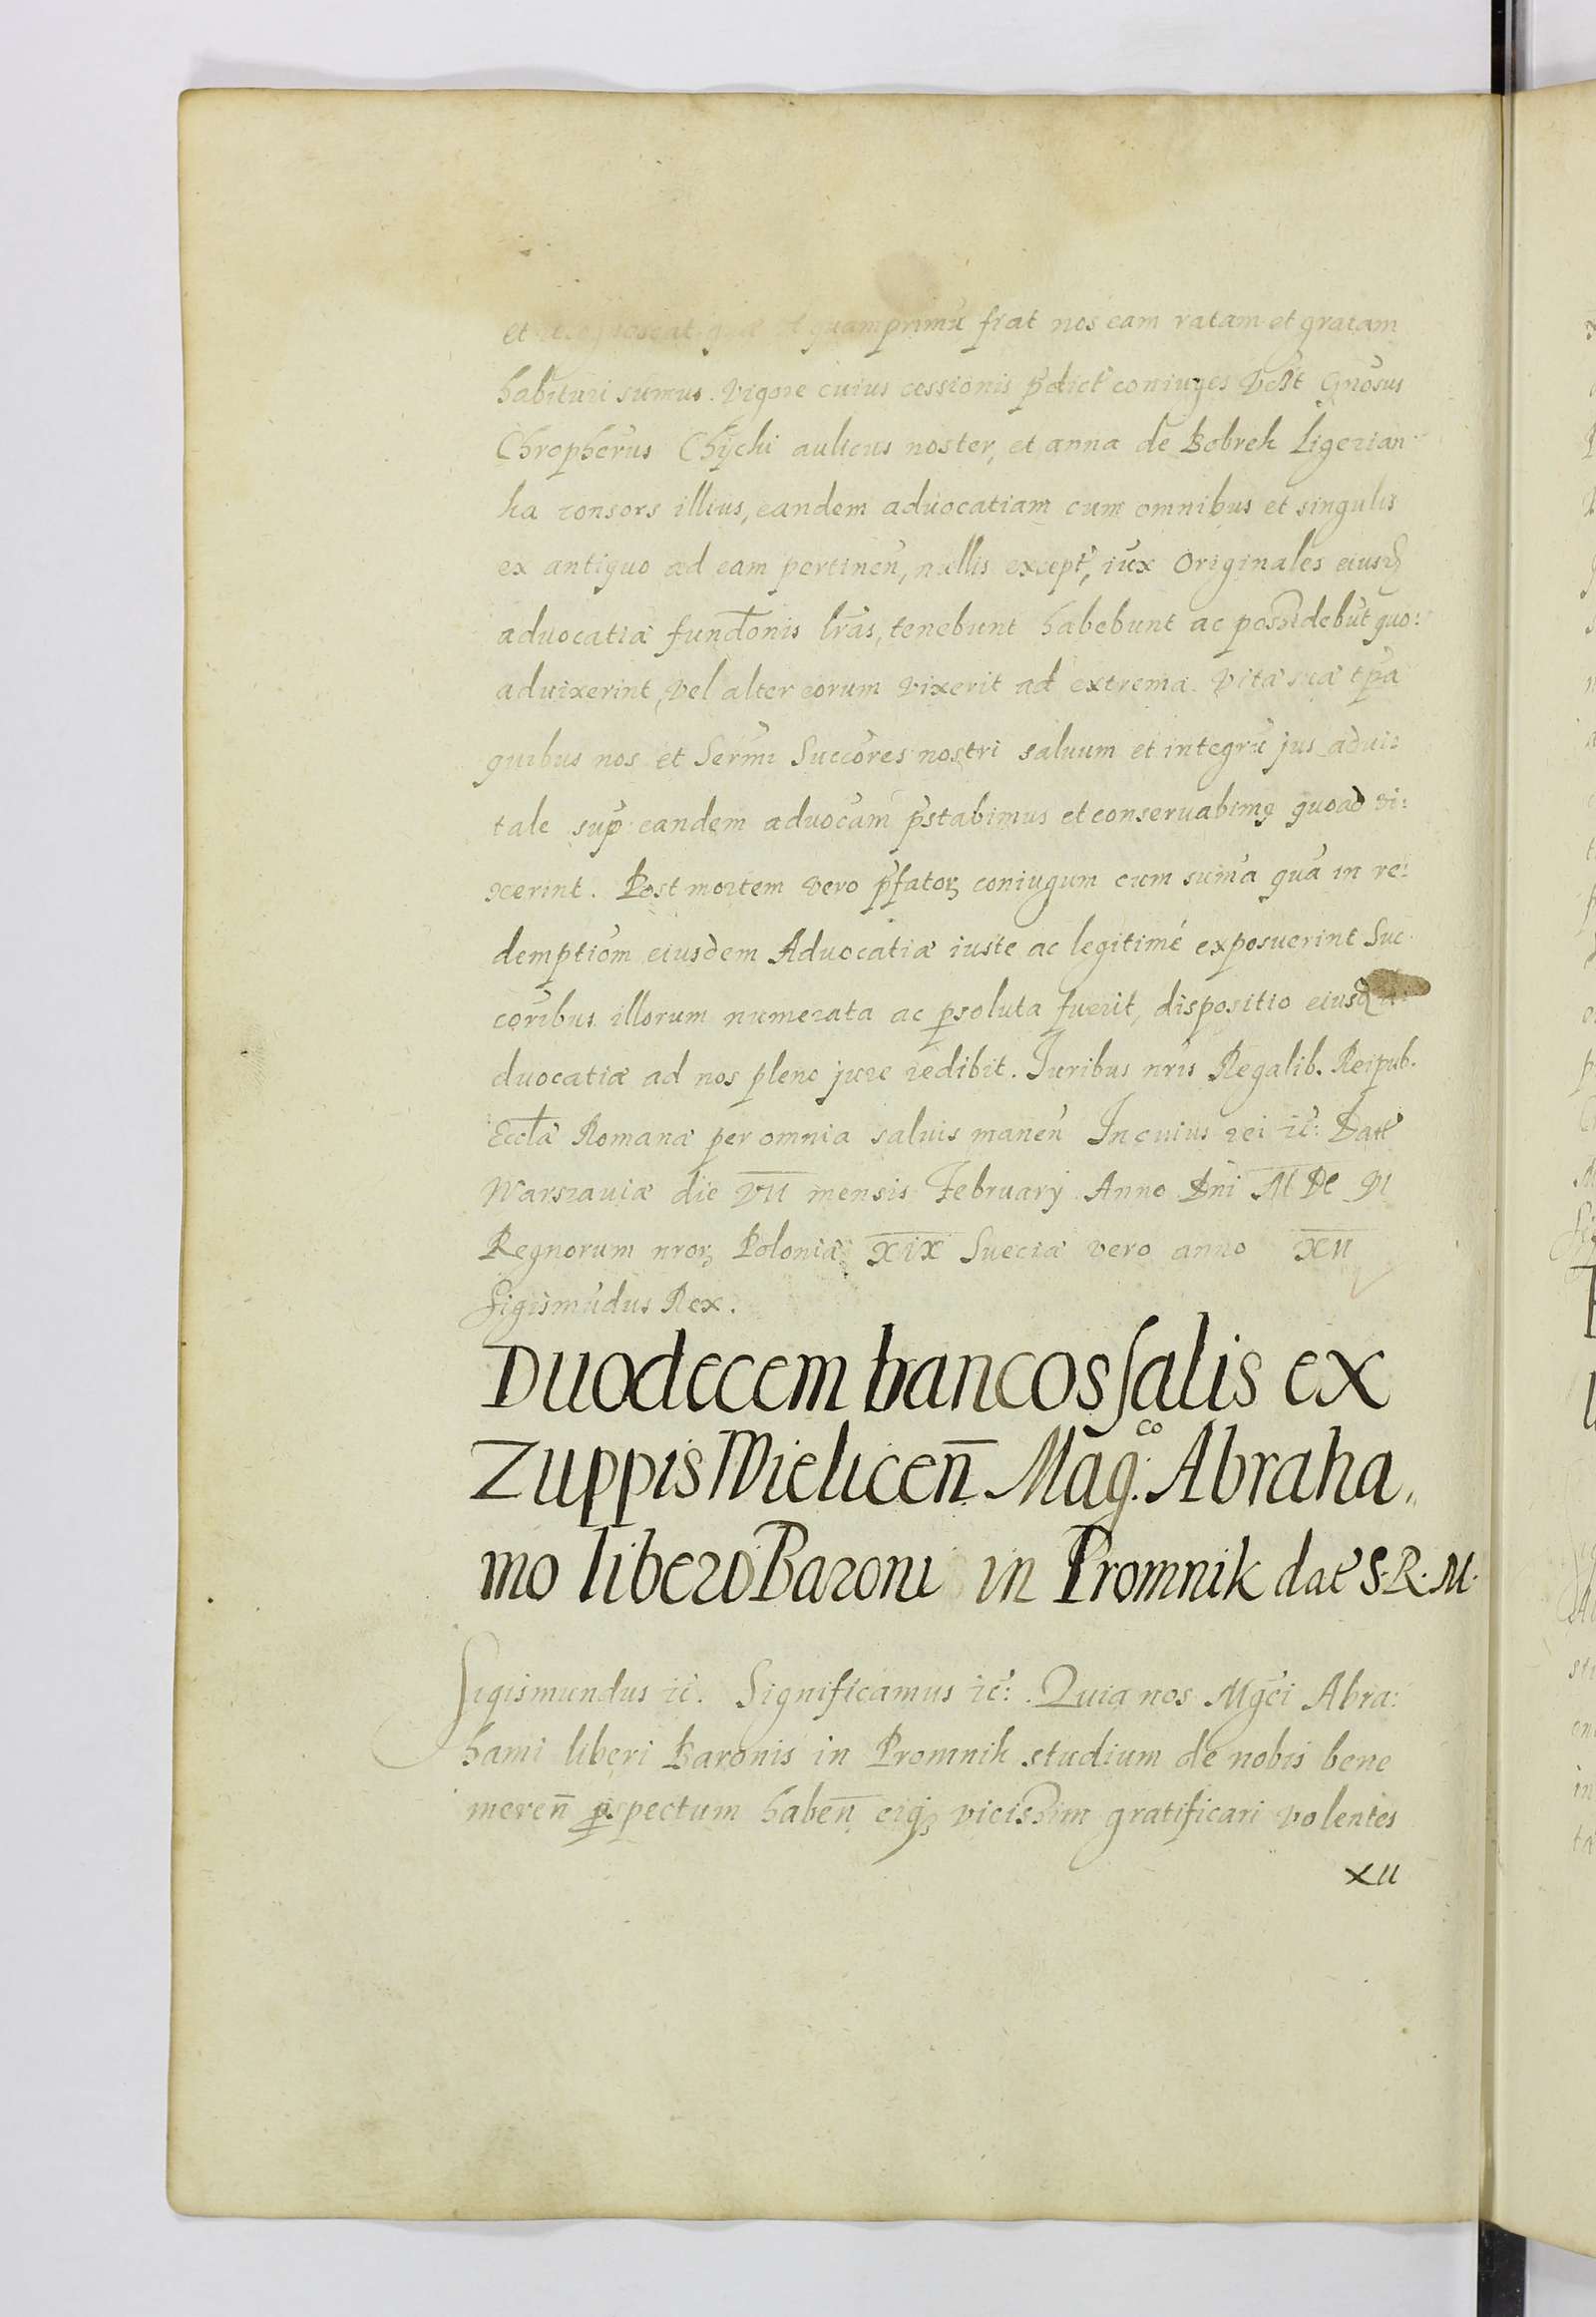 et quamprimū fiat nos eam ratam et gratam
habituri sumus. Vigore cuius cessionis p̄dict coniuges Gnōsus
Chropherus Chijcki aulicus noster, et anna de Bobrek Ligezian
ka consors illius, eandem advocatiam cum omnibus et singulis
ex antiquo ad eam pertinen̄, nullis except, iux Originales eiusd
advocatiæ fundōnis lrās, tenebunt habebunt ac possidebūt quo:
advixerint, vel alter eorum vixerit ad extrema vitæ suæ tpā
quibus nos et Sermi Succōres nostri salvum et integrū jus advi:
tale sup eandem advocam p̄stabimus et conservabimq quoad vi:
xerint. Post mortem vero p̄fatoꝝ coniugum cum suma qua in re:
demptiom eiusdem Advocatiæ iuste ac legitimé exposuerint Suc
coribus illorum numerata ac ꝑsoluta fuerit, dispositio eiusd a:
dvocatiæ ad nos pleno jure redibit. Juribus nris Regalib. Reipub.
Eccłæ Romanæ per omnia salvis manen̄ In cuius rei ic̄: Dat
Warszaviæ die VII mensis February Anno Dni M De VI
Regnorum nroꝝ Poloniæ XIX Sueciæ vero anno XII
Sigismūdus Rex.
Duodecem bancos salis ex
Zuppis Wielicen̄ Mag:co Abraha„
mo libero Baroni in Promnik dat S.R.M.
Sigismundus ic̄. Significamus ic̄: Quia nos Mgci Abra:
hami liberi Baronis in Promnik studium de nobis bene
meren̄ ꝑspectum haben̄ eiqꝫ vicissim gratificari volentes
XII